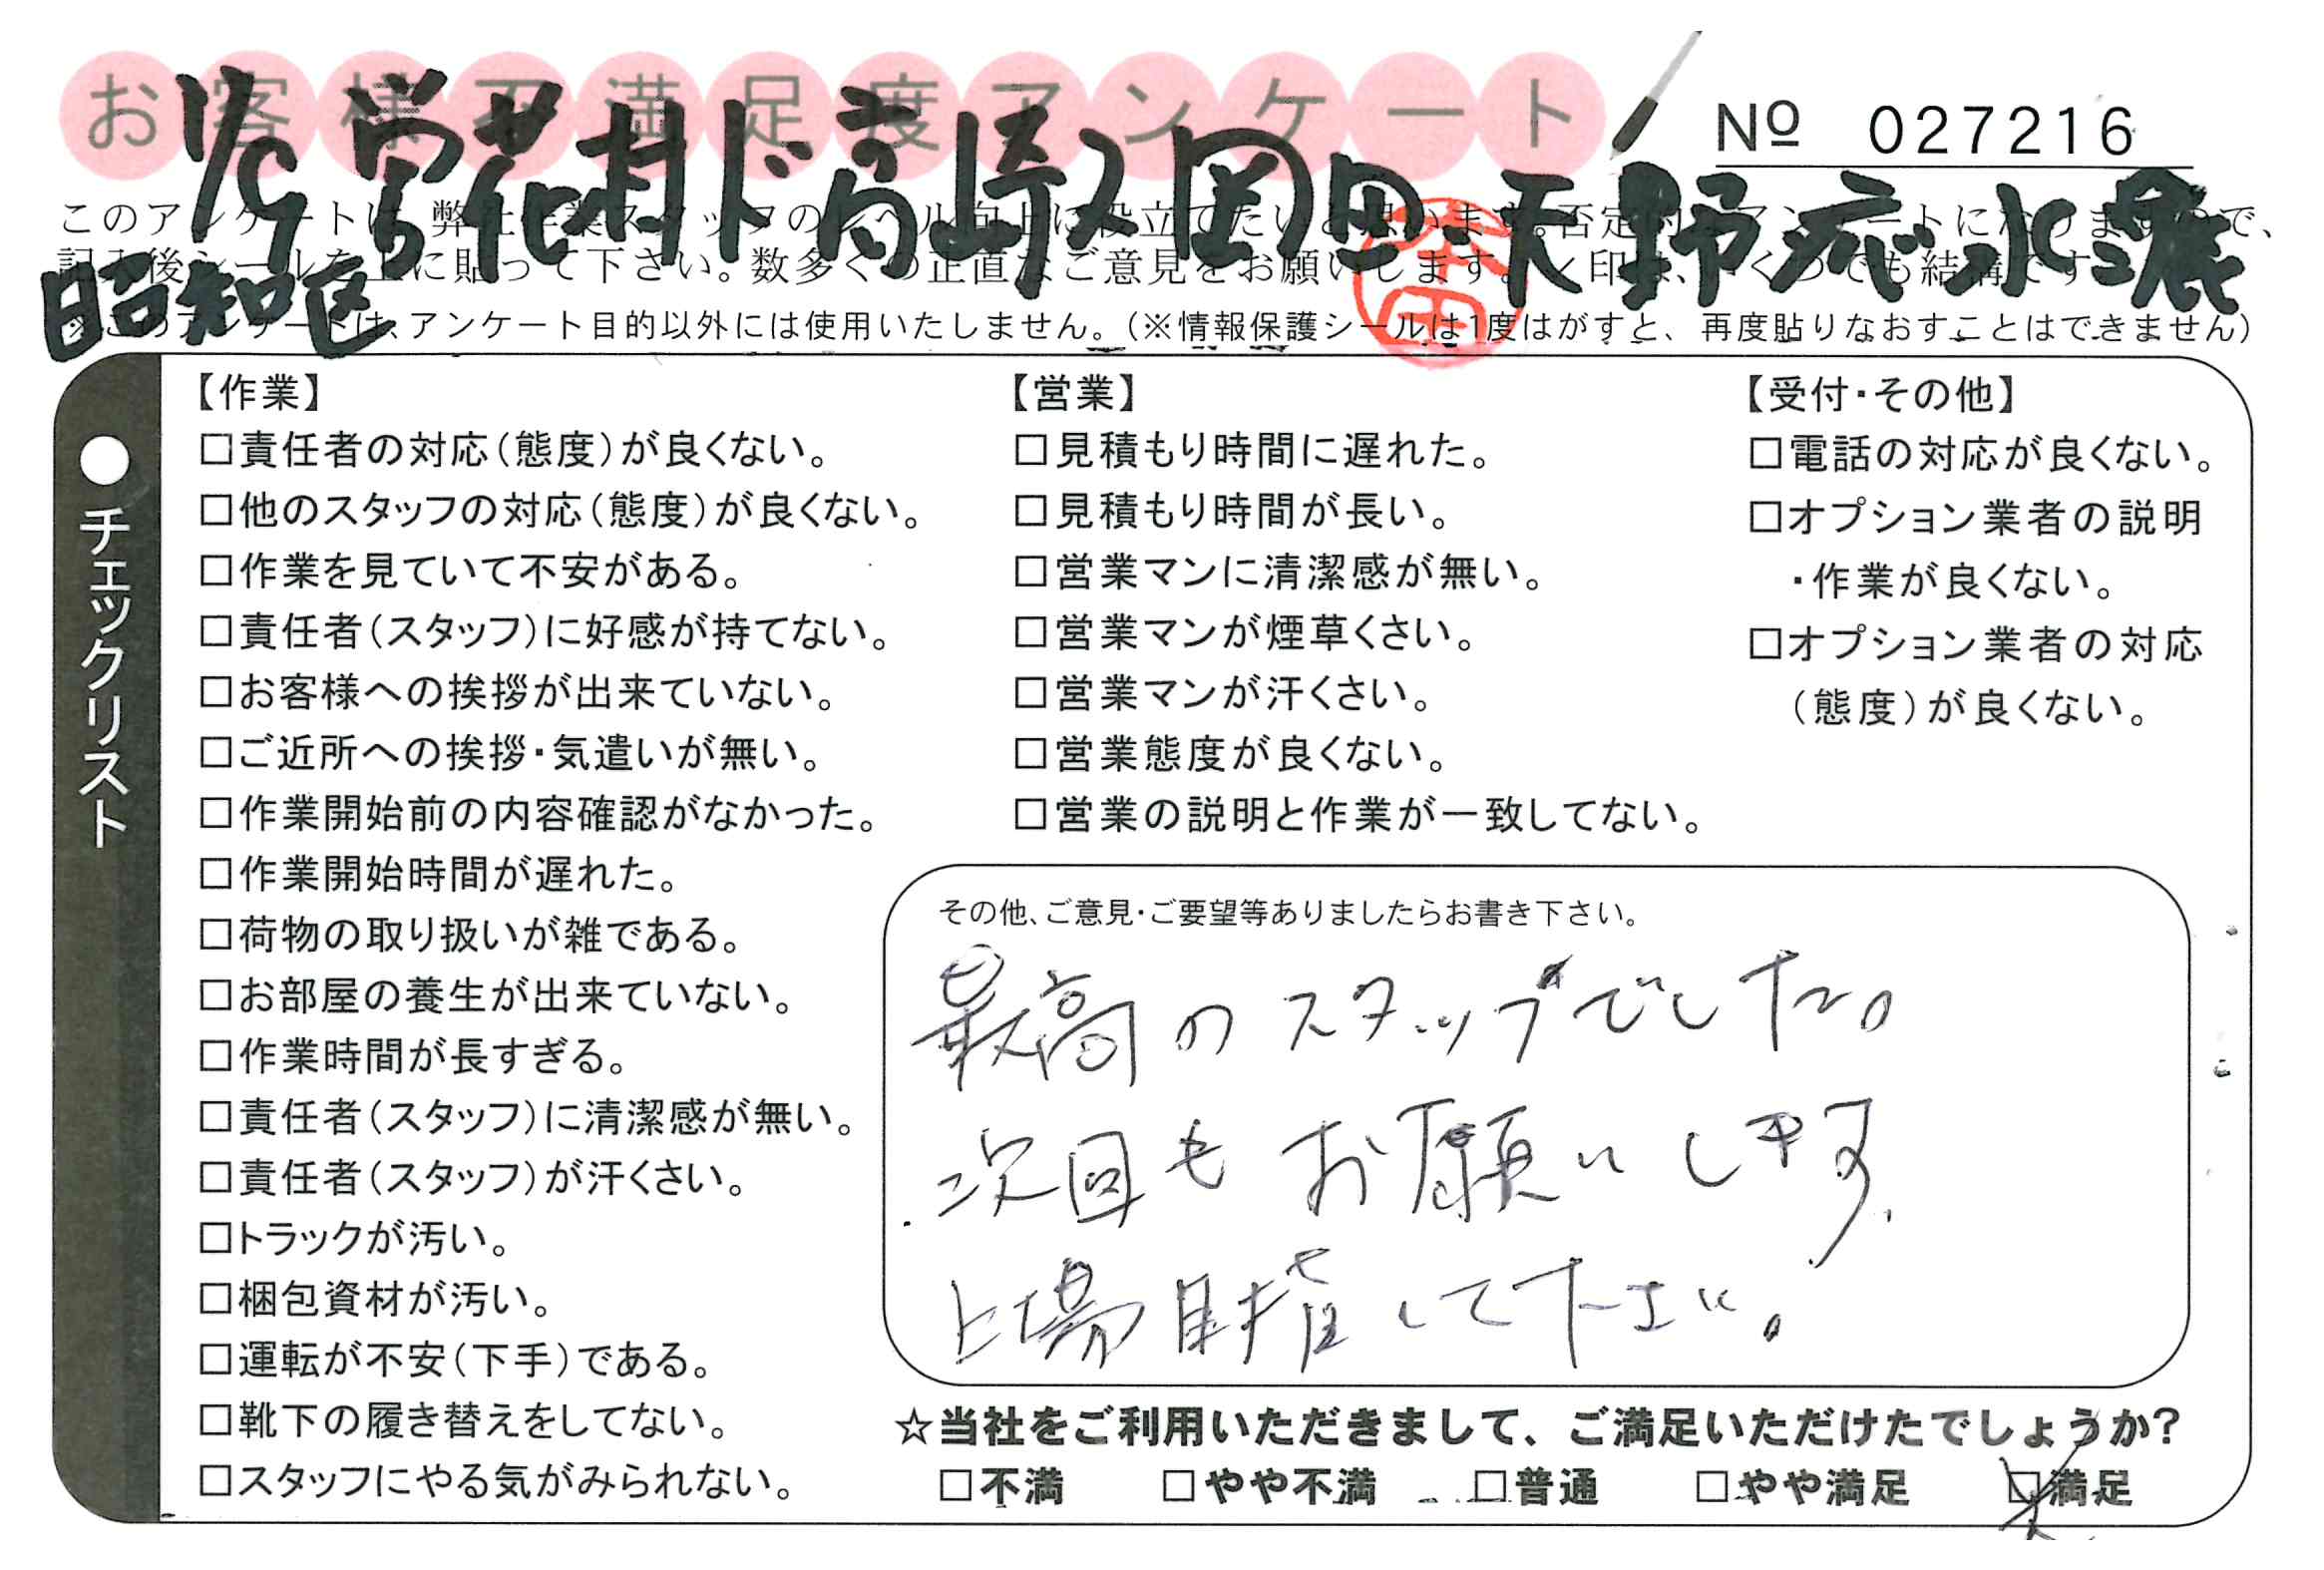 お客様不満足度アンケート
No 027216
このアンケートは、弊社作業スタッフのレベル向上に役立てたいと思います。否定的なアンケートになりますので、
記入後シールを上に貼って下さい。数多くの正直なご意見をお願いします。✓印は、いくつでも結構です
※このアンケートは、アンケート目的以外には使用いたしません。(※情報保護シールは1度はがすと、再度貼りなおすことはできません)
1/9 営花村ド高崎又岡田 天野 水濃
昭和区
本田
●チェックリスト
【作業】
□責任者の対応(態度)が良くない。
□他のスタッフの対応(態度)が良くない。
□作業を見ていて不安がある。
□責任者(スタッフ)に好感が持てない。
□お客様への挨拶が出来ていない。
□ご近所への挨拶・気遣いが無い。
□作業開始前の内容確認がなかった。
□作業開始時間が遅れた。
□荷物の取り扱いが雑である。
□お部屋の養生が出来ていない。
□作業時間が長すぎる。
□責任者(スタッフ)に清潔感が無い。
□責任者(スタッフ)が汗くさい。
□トラックが汚い。
□梱包資材が汚い。
□運転が不安(下手)である。
□靴下の履き替えをしてない。
□スタッフにやる気がみられない。
【営業】
□見積もり時間に遅れた。
□見積もり時間が長い。
□営業マンに清潔感が無い。
□営業マンが煙草くさい。
□営業マンが汗くさい。
□営業態度が良くない。
□営業の説明と作業が一致してない。
【受付・その他】
□電話の対応が良くない。
□オプション業者の説明
・作業が良くない。
□オプション業者の対応
(態度)が良くない。
その他、ご意見・ご要望等ありましたらお書き下さい。
最高のスタッフでした。
次回もお願いします
上場目指して下さい。
☆当社をご利用いただきまして、ご満足いただけたでしょうか?
□不満 □やや不満 □普通 □やや満足 □満足